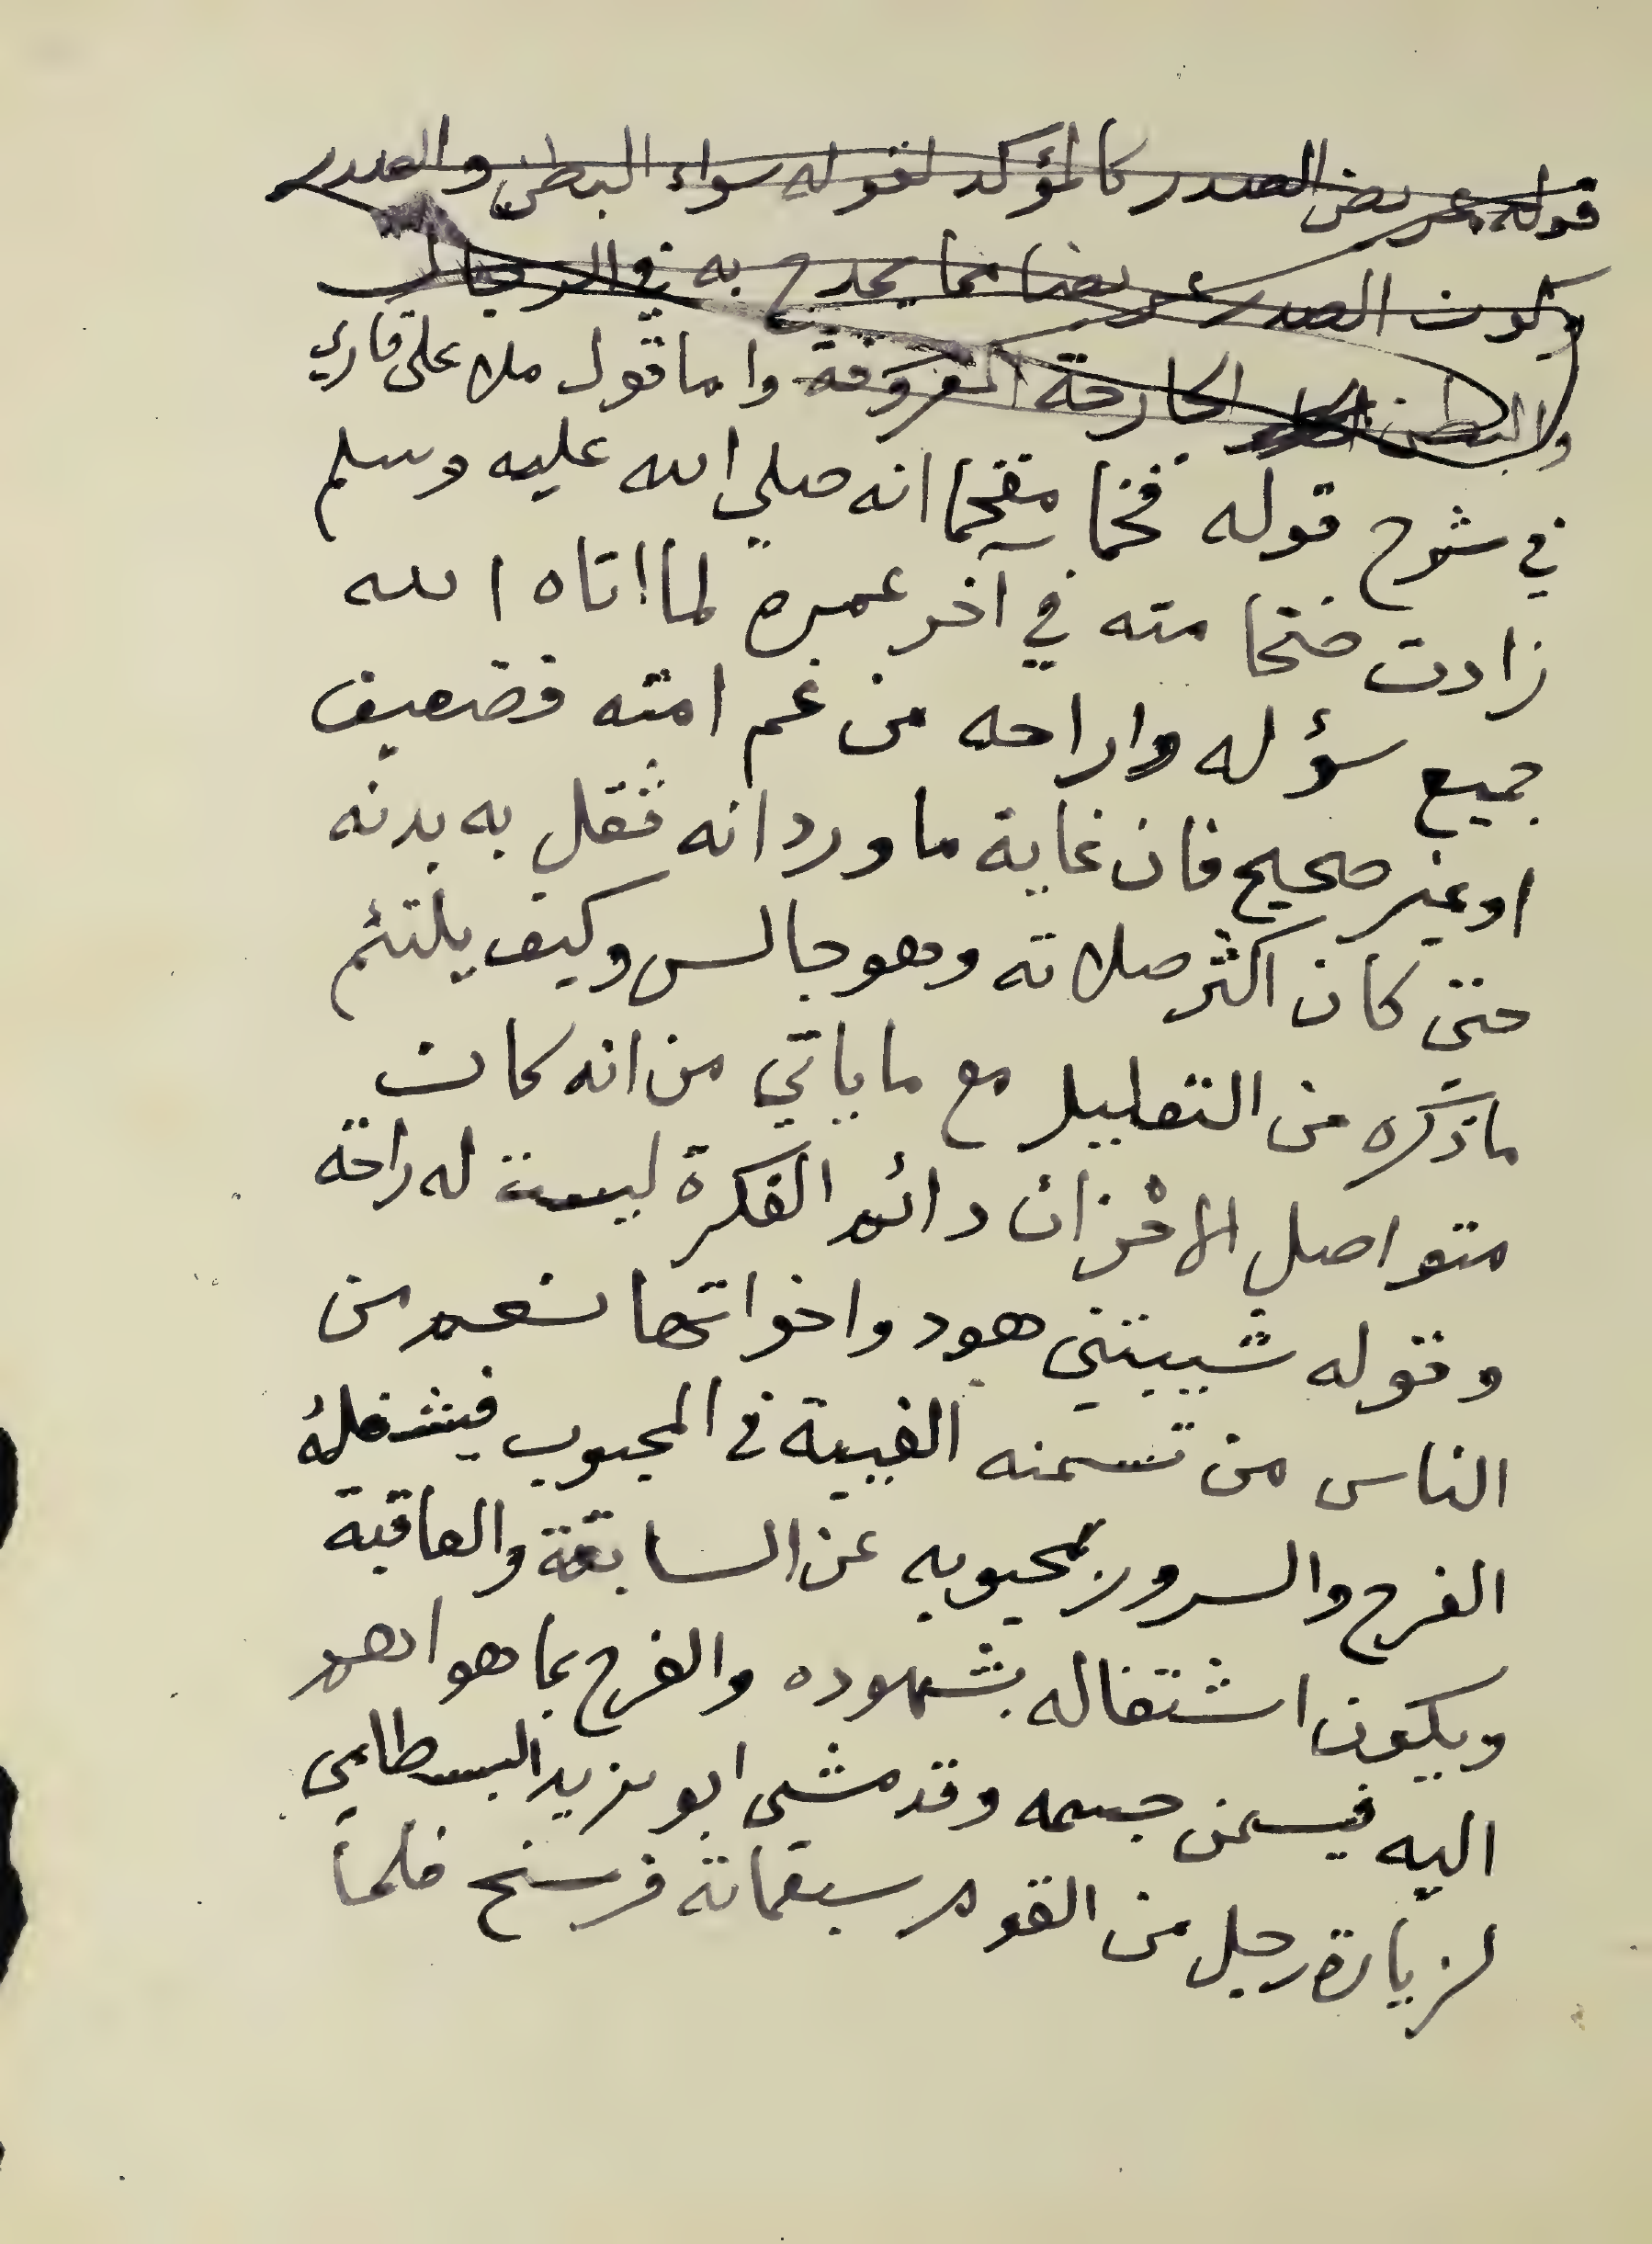 قوله عريض الصدر كالمؤكد لقوله سواء البطن والصدر
وكون الصدر عريضا مما يمدح به في الرجال
والبطن الجارحة المعروفة واما قول ملا على قاري
في شرح قوله فخما مفخما انه صلي الله عليه وسلم
زادت ضخامته في آخر عمره لما اتاه الله
جميع سؤله واراحه من غم امته فضعيف
او غير صحيح فان غاية ما ورد انه ثقل به بدنه
حتى كان اكثر صلاته وهو جالس وكيف يلتئم
ما ذكره من التعليل مع ما ياتي من انه كان
متواصل الاحزان دائم الفكرة ليست له راحة
وقوله شيبتني هود واخواتها نعم من
الناس من تسمنه الغيبة في المحبوب فيشغله
الفرح والسرور بمحبوبه عن السابقة والعاقبة
ويكون اشتغاله بشهوده والفرح بما هو اهم
اليه فيسمن جسمه وقد مشى ابو يزيد البسطامي
لزيارة رجل من القوم سبعمائة فرسخ فلما